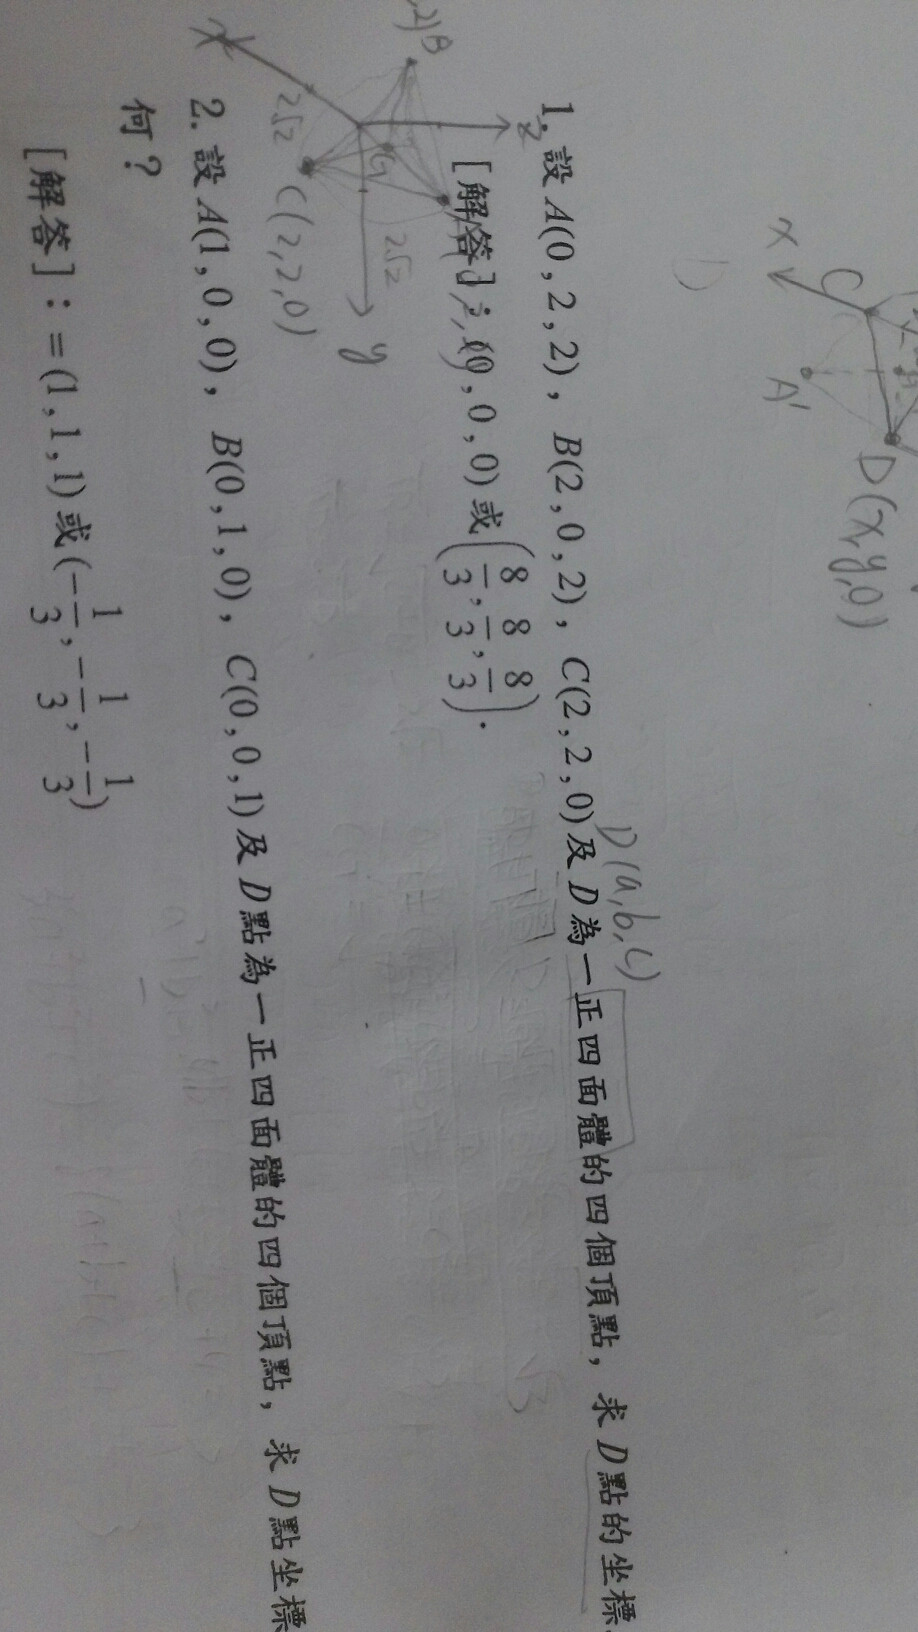 x
C
A'
D(x,y,0)
D(a,b,c)
1. 設 A(0,2,2), B(2,0,2), C(2,2,0)及 D 為一正四面體的四個頂點, 求 D 點的坐標
[解答]: (0,0,0)或(8/3,8/3,8/3).
z
B
G
2√2
2√2
C(2,2,0)
y
x
2. 設 A(1,0,0), B(0,1,0), C(0,0,1)及 D 點為一正四面體的四個頂點, 求 D 點坐標
何?
[解答]:=(1,1,1)或(-1/3,-1/3,-1/3)